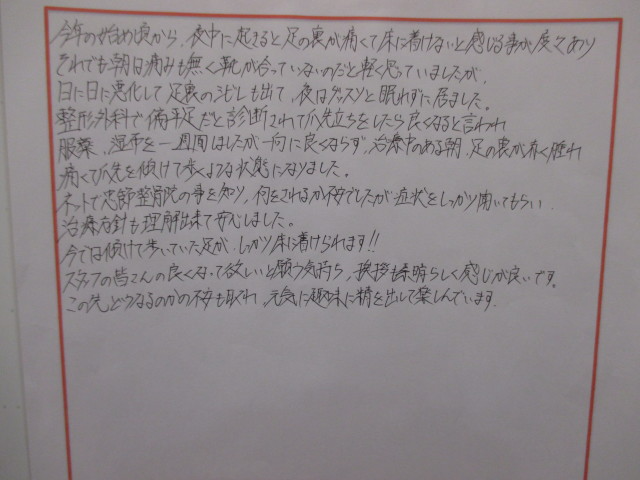 今年の始め頃から、夜中に起きると足の裏が痛くて床に着けないと感じる事が度々あり
それでも朝は痛みも無く靴が合っていないのだと軽く思っていましたが、
日に日に悪化して足裏のシビレも出て、夜はグッスリと眠れずに居ました。
整形外科で偏平足だと診断されつま先立ちをしたら良くなると言われ
服薬、湿布を一週間しましたが一向に良くならず、治療中のある朝、足の裏が赤く腫れ
痛くてつま先を傾けて歩くような状態になりました。
ネットで忠節整骨院の事を知り、何をされるか不安でしたが症状をしっかり聞いてもらい
治療方針も理解出来て安心しました。
今では傾けて歩いていた足が、しっかり床に着けられます!!
スタッフの皆さんの良くなって欲しいと願う気持ち、挨拶も素晴らしく感じが良いです。
この先どうなるのかの不安も取れ、元気に趣味に精を出して楽しんでいます。